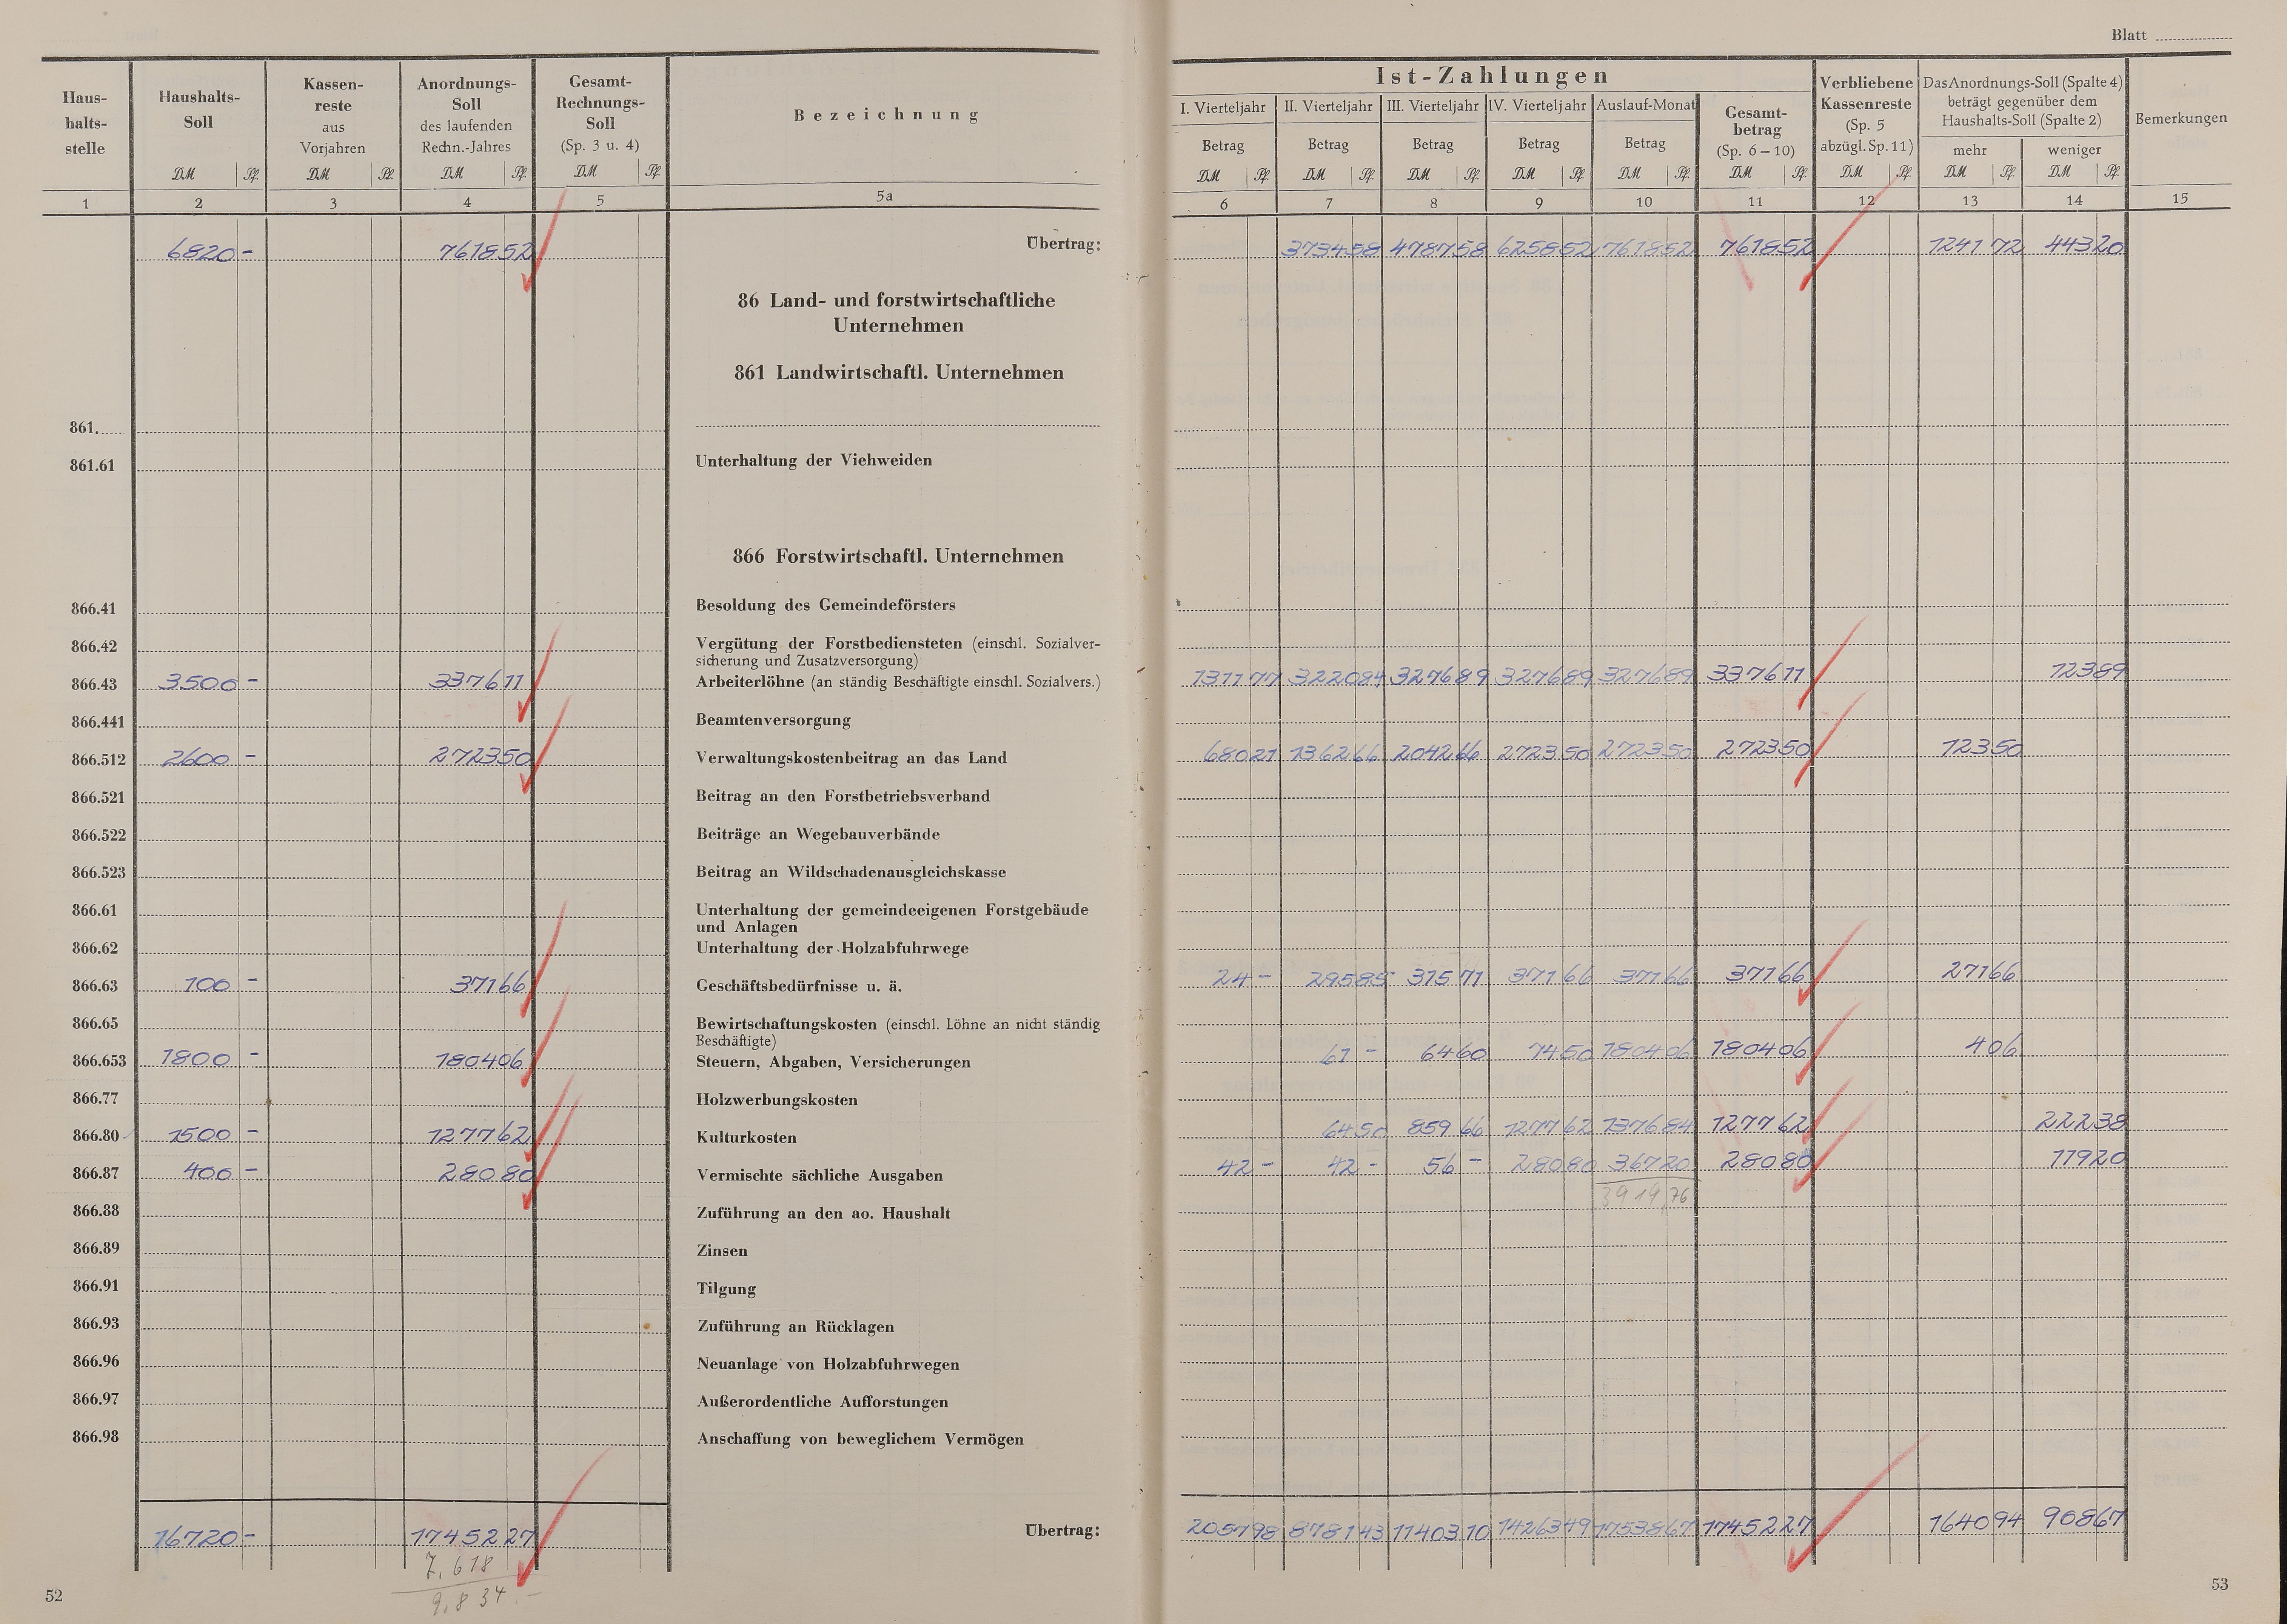 Blatt
Haus-
halts-
stelle
Haushalts-
Soll
DM Pf.
Kassen-
reste
aus
Vorjahren
DM Pf.
Anordnungs-
Soll
des laufenden
Rechn.-Jahres
DM Pf.
Gesamt-
Rechnungs-
Soll
(Sp. 3 u. 4)
DM Pf.
Bezeichnung
Ist-Zahlungen
I. Vierteljahr II. Vierteljahr III. Vierteljahr IV. Vierteljahr Auslauf-Monat
Betrag Betrag Betrag Betrag Betrag
DM Pf. DM Pf. DM Pf. DM Pf. DM Pf.
Gesamt-
betrag
(Sp. 6–10)
DM Pf.
Verbliebene
Kassenreste
(Sp. 5
abzügl. Sp. 11)
DM Pf.
Das Anordnungs-Soll (Spalte 4)
beträgt gegenüber dem
Haushalts-Soll (Spalte 2)
mehr weniger
DM Pf. DM Pf.
Bemerkungen
1 2 3 4 5 5a 6 7 8 9 10 11 12 13 14 15
6820 - 7618 52 Übertrag: 3734 58 4787 58 6258 52 7618 52 7618 52 1241 72 443 20
86 Land- und forstwirtschaftliche
Unternehmen
861 Landwirtschaftl. Unternehmen
861.
861.61 Unterhaltung der Viehweiden
866 Forstwirtschaftl. Unternehmen
866.41 Besoldung des Gemeindeförsters
866.42 Vergütung der Forstbediensteten (einschl. Sozialver-
sicherung und Zusatzversorgung)
866.43 3500 - 3376 11 Arbeiterlöhne (an ständig Beschäftigte einschl. Sozialvers.) 1311 77 3220 84 3276 89 3276 89 3276 89 3376 11 123 89
866.441 Beamtenversorgung
866.512 2600 - 2723 50 Verwaltungskostenbeitrag an das Land 680 21 1362 66 2042 66 2723 50 2723 50 2723 50 123 50
866.521 Beitrag an den Forstbetriebsverband
866.522 Beiträge an Wegebauverbände
866.523 Beitrag an Wildschadenausgleichskasse
866.61 Unterhaltung der gemeindeeigenen Forstgebäude
und Anlagen
866.62 Unterhaltung der Holzabfuhrwege
866.63 100 - 371 66 Geschäftsbedürfnisse u. ä. 24 - 295 85 315 71 371 66 371 66 371 66 271 66
866.65 Bewirtschaftungskosten (einschl. Löhne an nicht ständig
Beschäftigte)
866.653 1800 - 1804 06 Steuern, Abgaben, Versicherungen 61 - 64 60 74 50 1804 06 1804 06 4 06
866.77 Holzwerbungskosten
866.80 1500 - 1277 62 Kulturkosten 64 50 859 66 1277 62 1376 84 1277 62 222 38
866.87 400 - 280 80 Vermischte sächliche Ausgaben 42 - 42 - 56 - 280 80 367 20 280 80 119 20
3919,76
866.88 Zuführung an den ao. Haushalt
866.89 Zinsen
866.91 Tilgung
866.93 Zuführung an Rücklagen
866.96 Neuanlage von Holzabfuhrwegen
866.97 Außerordentliche Aufforstungen
866.98 Anschaffung von beweglichem Vermögen
16720 - 17452 27 Übertrag: 2057 98 8781 43 11403 10 14263 49 17538 67 17452 27 1640 94 908 67
7.618
9.834.-
52
53